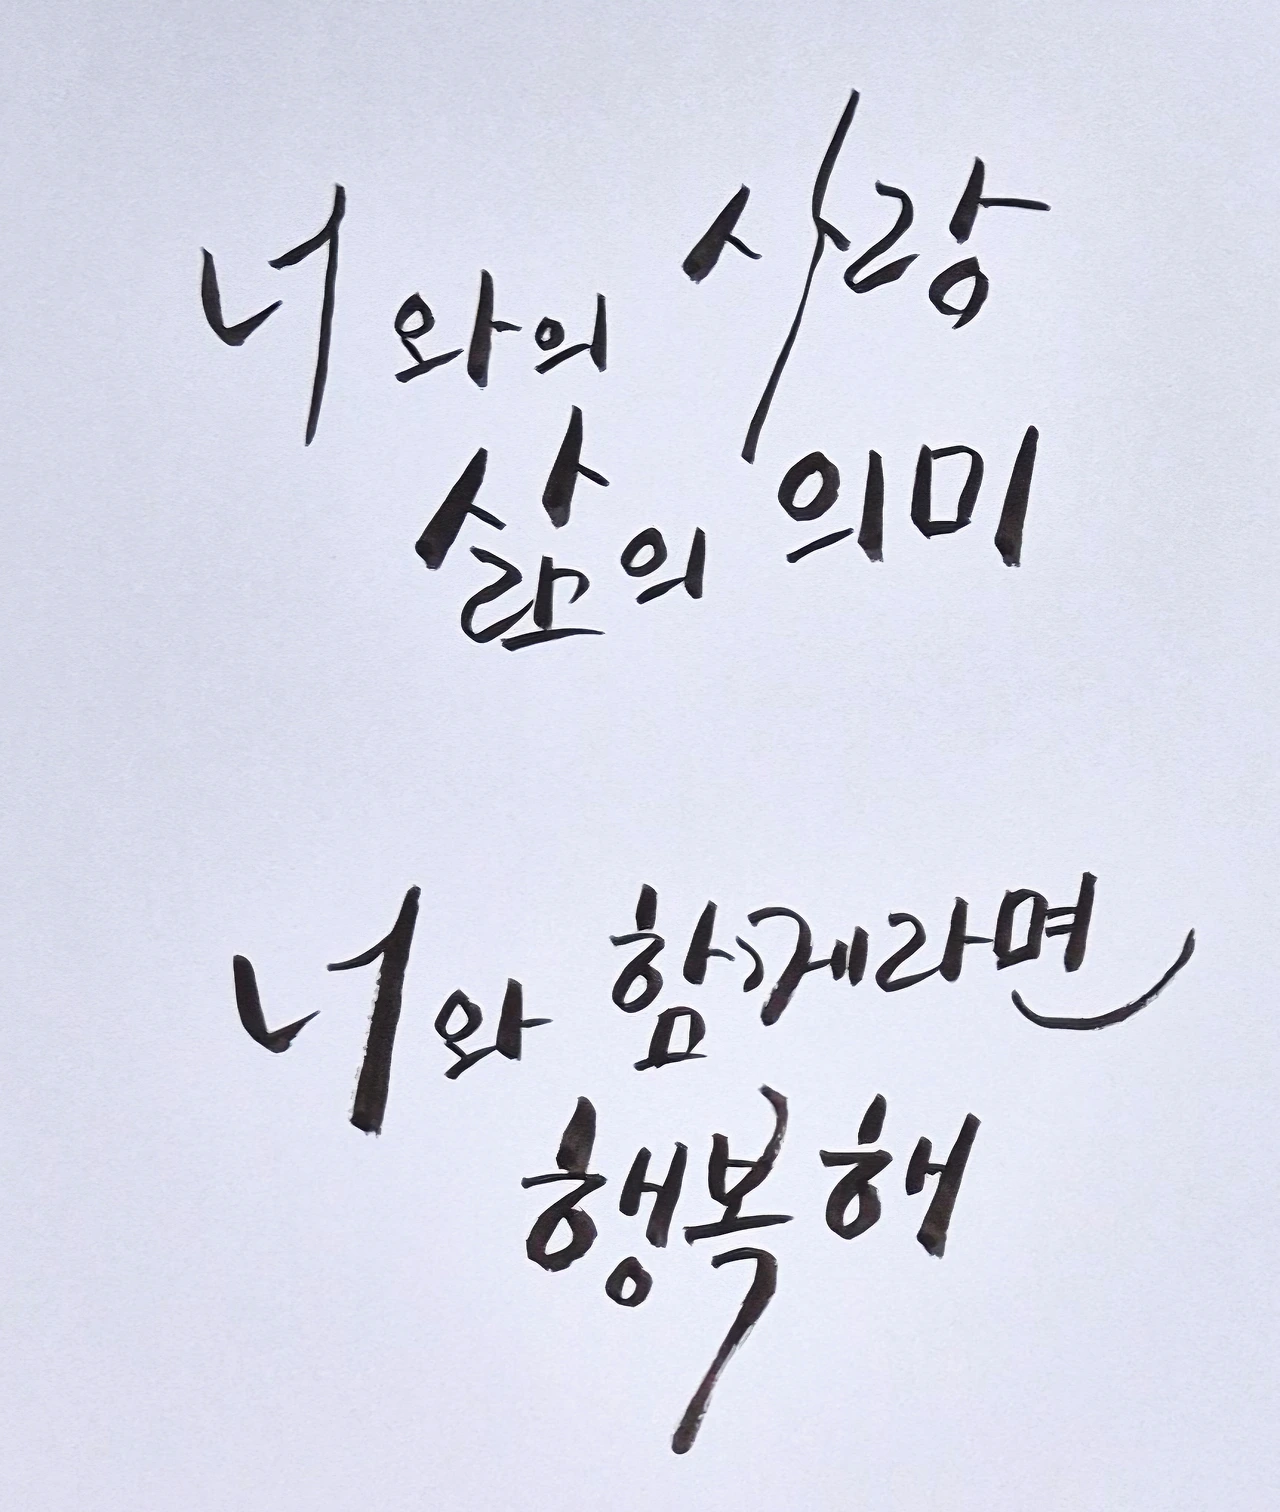 너와의 사랑
삶의 의미
너와 함께라면
행복해